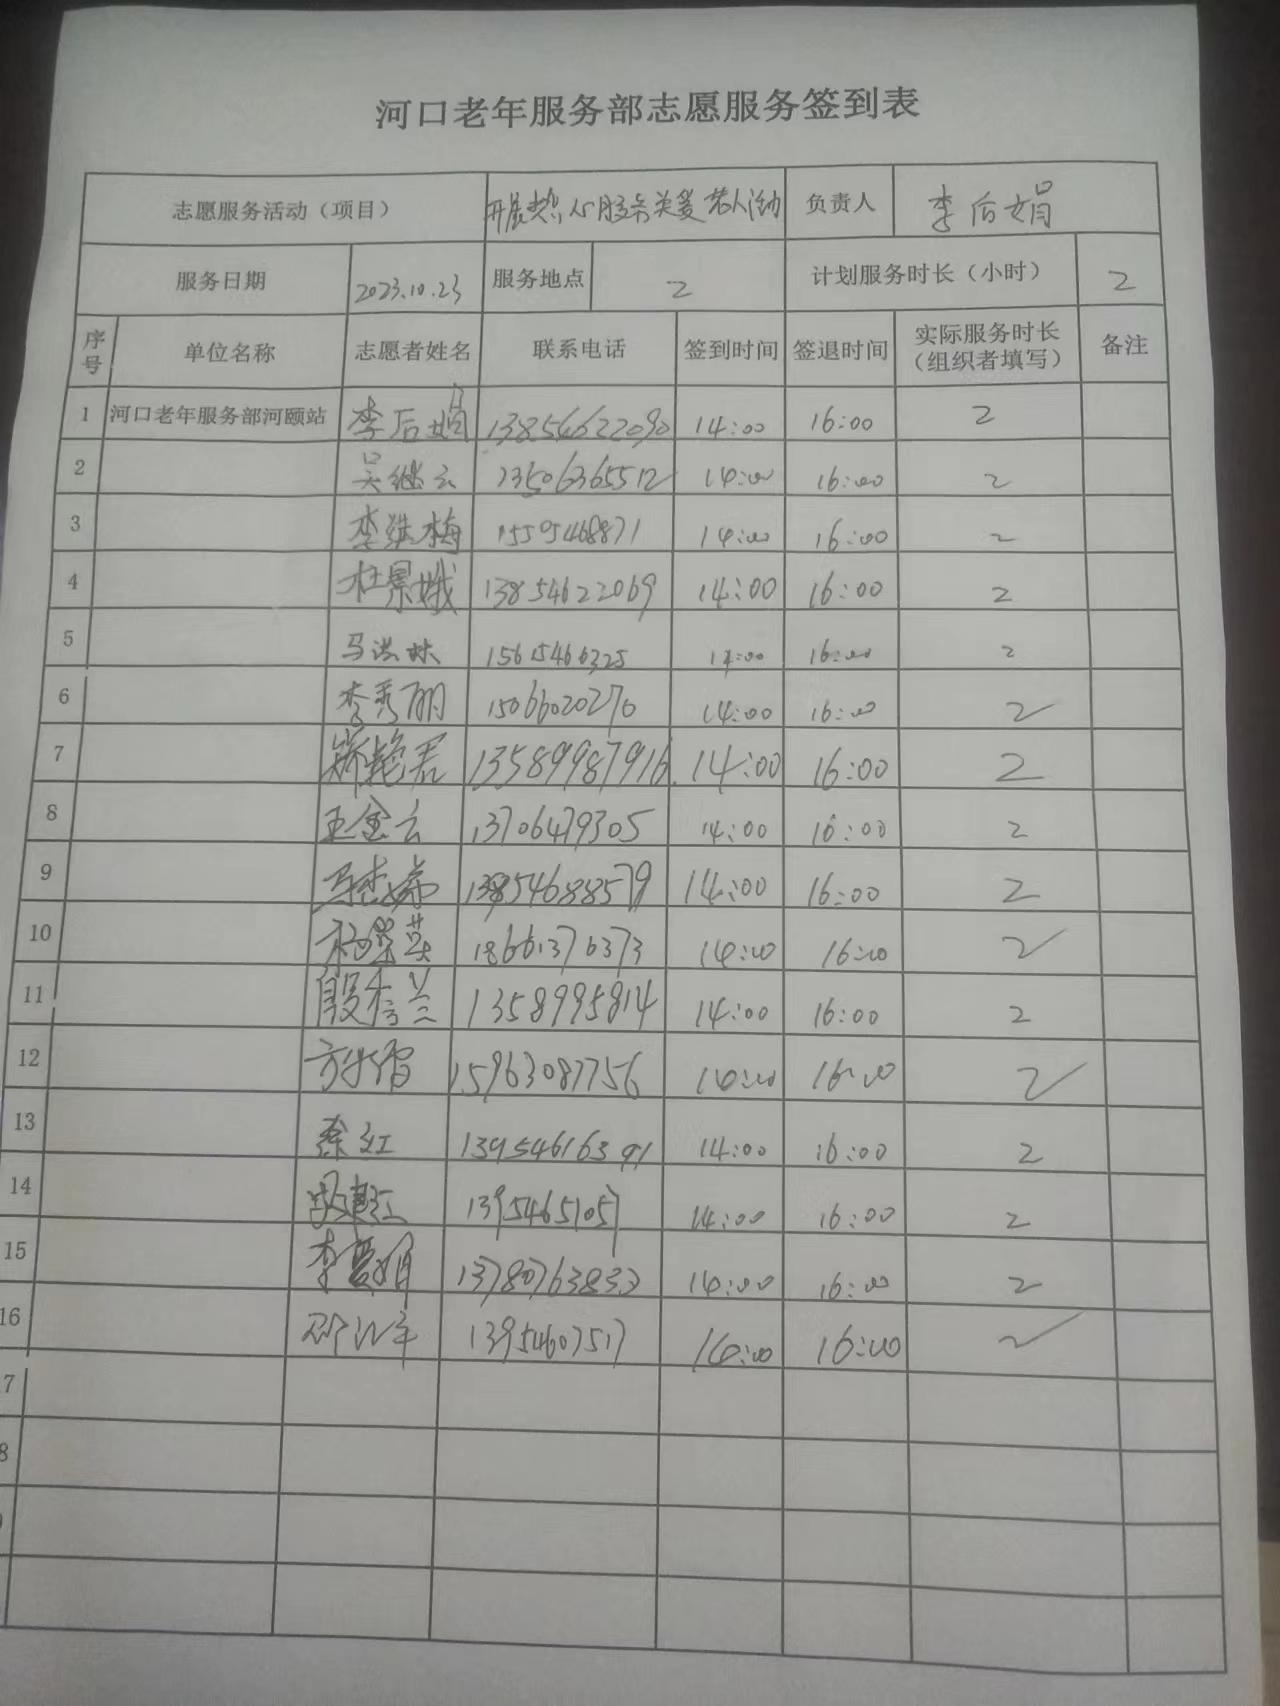 河口老年服务部志愿服务签到表
志愿服务活动（项目） 开展热心服务关爱老人活动 负责人 李后娟
服务日期 2023.10.23 服务地点 2 计划服务时长（小时） 2
序号 单位名称 志愿者姓名 联系电话 签到时间 签退时间 实际服务时长（组织者填写） 备注
1 河口老年服务部河颐站 李后娟 13854622090 14:00 16:00 2
2 吴继云 13506365512 14:00 16:00 2
3 李洪梅 15505468871 14:00 16:00 2
4 杜景娥 13854622069 14:00 16:00 2
5 马洪林 15615466325 14:00 16:00 2
6 李秀丽 15066020270 14:00 16:00 2
7 艳君 13589987916 14:00 16:00 2
8 王金云 13706479305 14:00 16:00 2
9 13854688579 14:00 16:00 2
10 杨翠英 18661376373 14:00 16:00 2
11 段秀兰 1358995814 14:00 16:00 2
12 15963087756 14:00 16:00 2
13 徐红 13954616391 14:00 16:00 2
14 建红 13954651057 14:00 16:00 2
15 李爱娟 13780763833 14:00 16:00 2
16 13954607517 14:00 16:00 2
7
8